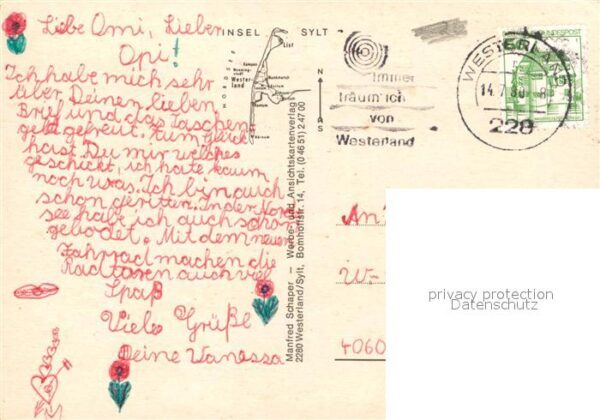 Liebe Omi, Lieber
Opi!
Ich habe mich sehr
über Deinen lieben
Brief und das Taschen
geld gefreut. Zum Glück
hast Du mir welches
geschickt, ich hate kaum
noch was. Ich bin auch
schon geritten. In der Nord
see hab ich auch schon
gebadet. Mit dem neuen
Fahrrad machen die
Radtoren auch viel
Spaß
Viele Grüße
Deine Vanessa
INSEL SYLT
List
Kampen
Wester-
land
N
S
Manfred Schaper — Werbe- und Ansichtskartenverlag
2280 Westerland/Sylt, Bomhoffstr. 14, Tel. (0 46 51) 2 47 00
immer
träum' ich
von
Westerland
WESTERLAND
14.7.80
228
BUNDESPOST
An
W-
4060
privacy protection
Datenschutz